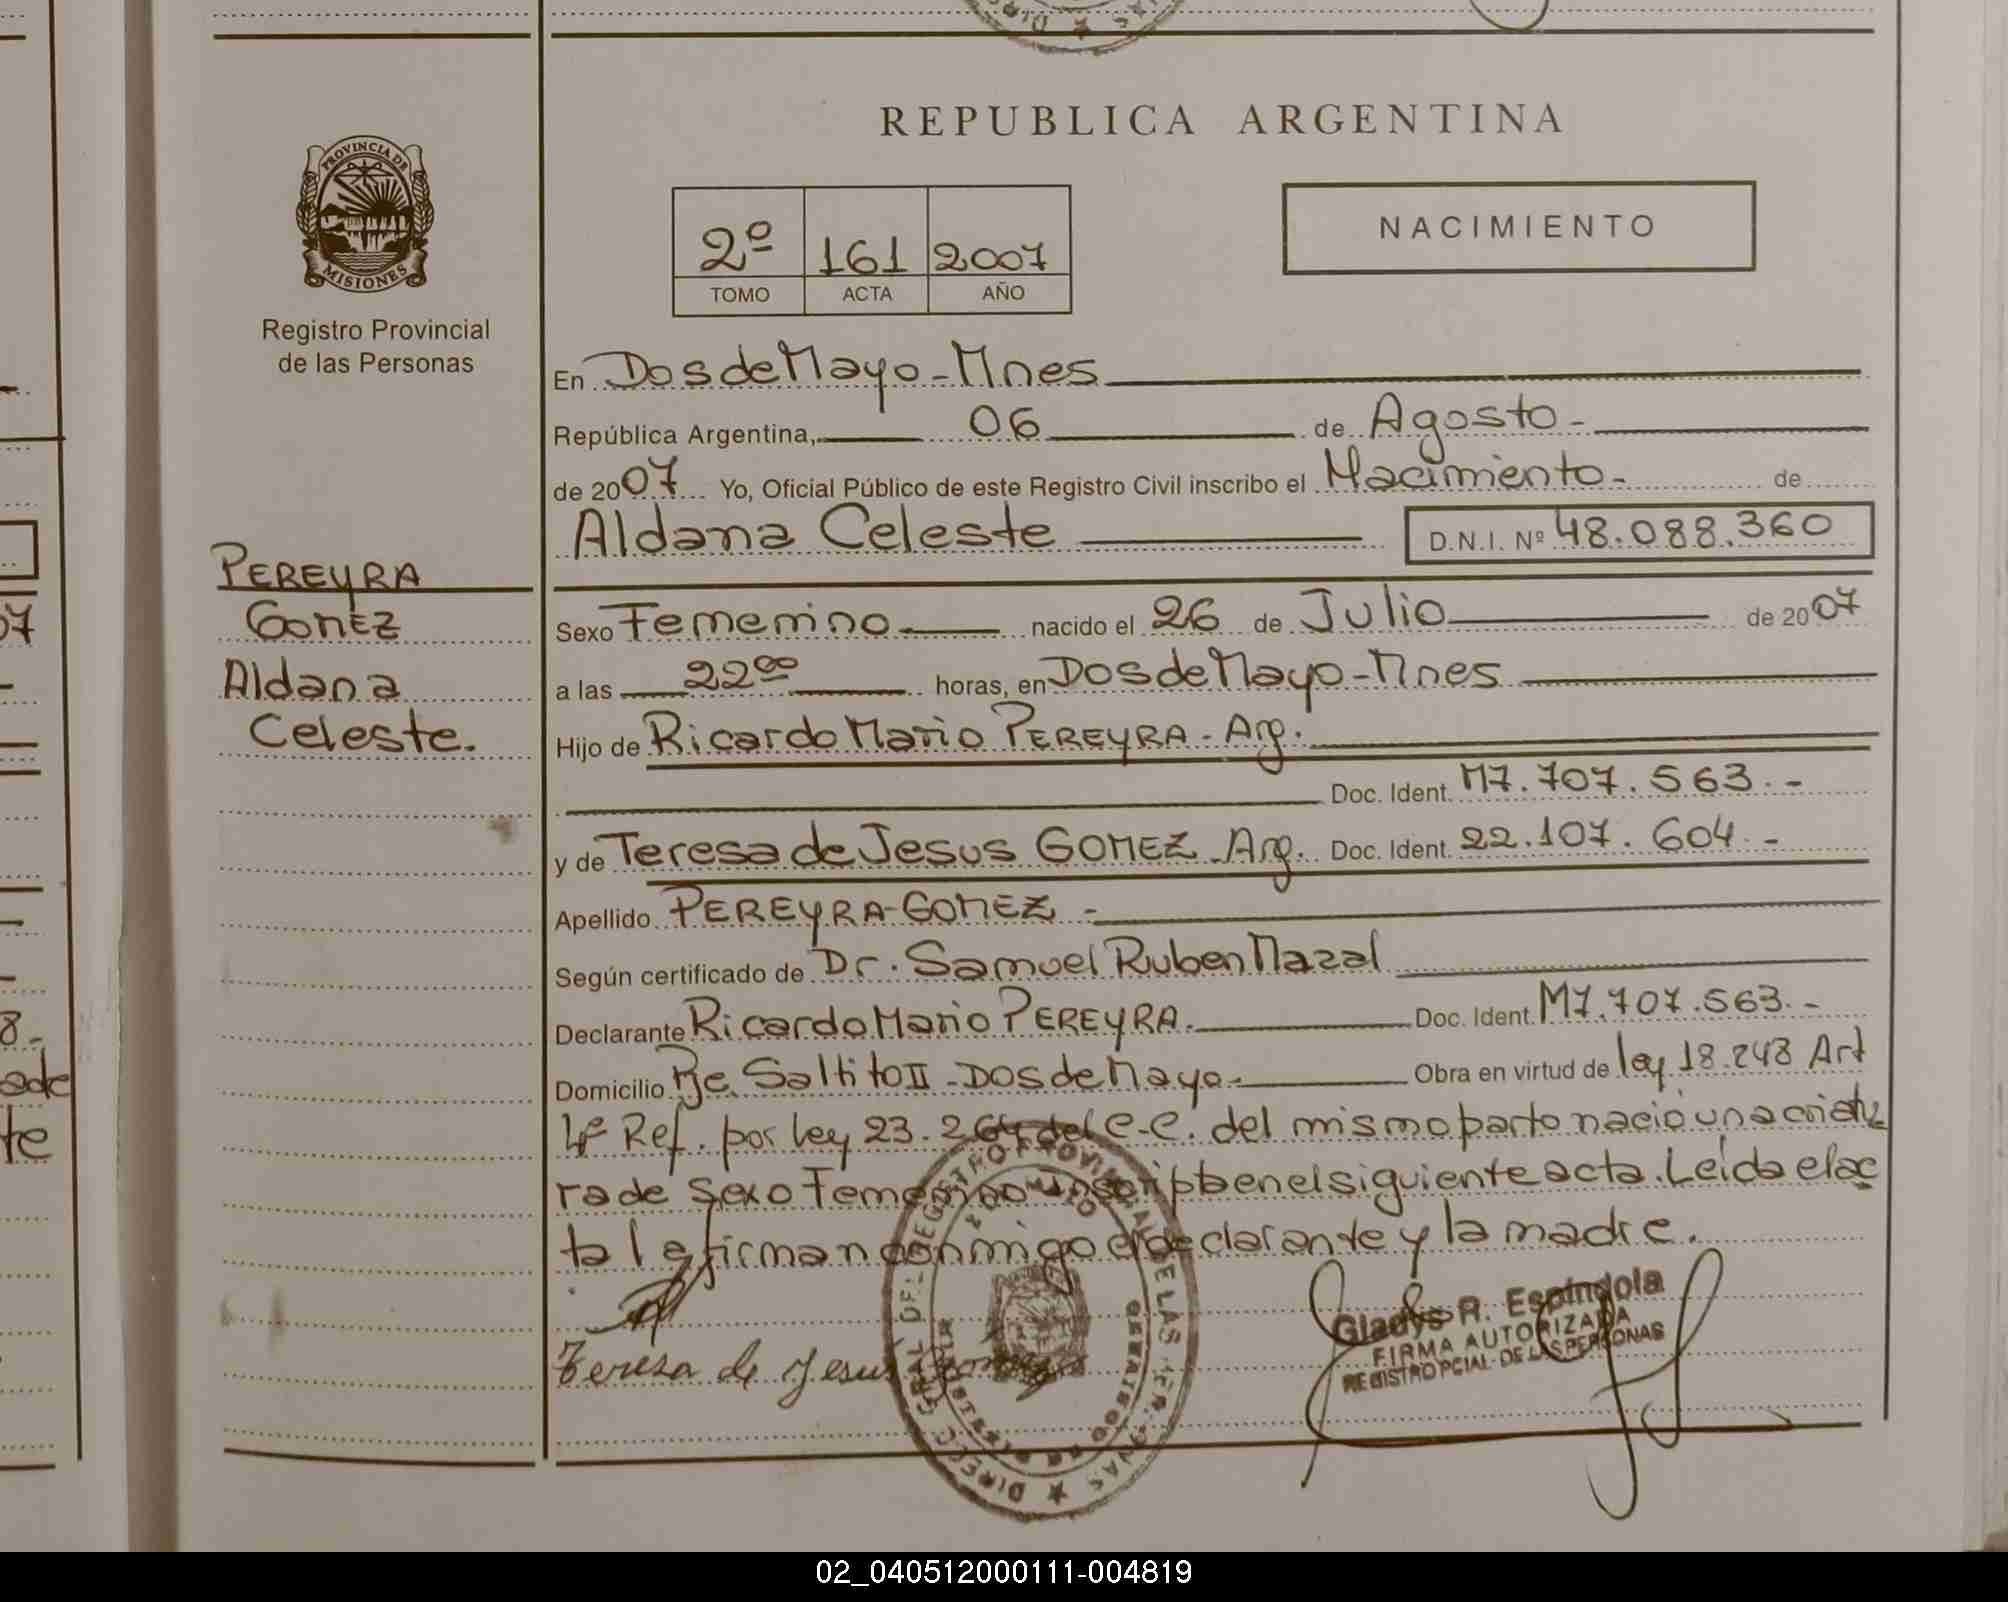 REPUBLICA ARGENTINA
PROVINCIA DE
MISIONES
Registro Provincial
de las Personas
2º 161 2007
TOMO ACTA AÑO
NACIMIENTO
En Dos de Mayo - Mnes
República Argentina, 06 de Agosto -
de 2007 Yo, Oficial Público de este Registro Civil inscribo el Nacimiento - de
Aldana Celeste D.N.I. Nº 48.088.360
PEREYRA
GOMEZ
Aldana
Celeste.
Sexo Femenino nacido el 26 de Julio de 2007
a las 22⁰⁰ horas, en Dos de Mayo - Mnes
Hijo de Ricardo Mario PEREYRA - Arg.
Doc. Ident. M7.707.563.-
y de Teresa de Jesus GOMEZ - Arg. Doc. Ident. 22.107.604.-
Apellido PEREYRA - GOMEZ -
Según certificado de Dr. Samuel Ruben Mazal
Declarante Ricardo Mario PEREYRA. Doc. Ident. M7.707.563.-
Domicilio Pje. Saltito II - Dos de Mayo - Obra en virtud de ley 18.248 Art
4º Ref. por ley 23.264 del C.C. del mismo parto nació una criatu
ra de sexo Femenino inscripta en el siguiente acta. Leida el ac
ta la firman conmigo el declarante y la madre.
Teresa de Jesus Gomez
Gladys R. Espindola
FIRMA AUTORIZADA
REGISTRO PCIAL. DE LAS PERSONAS
02_040512000111-004819